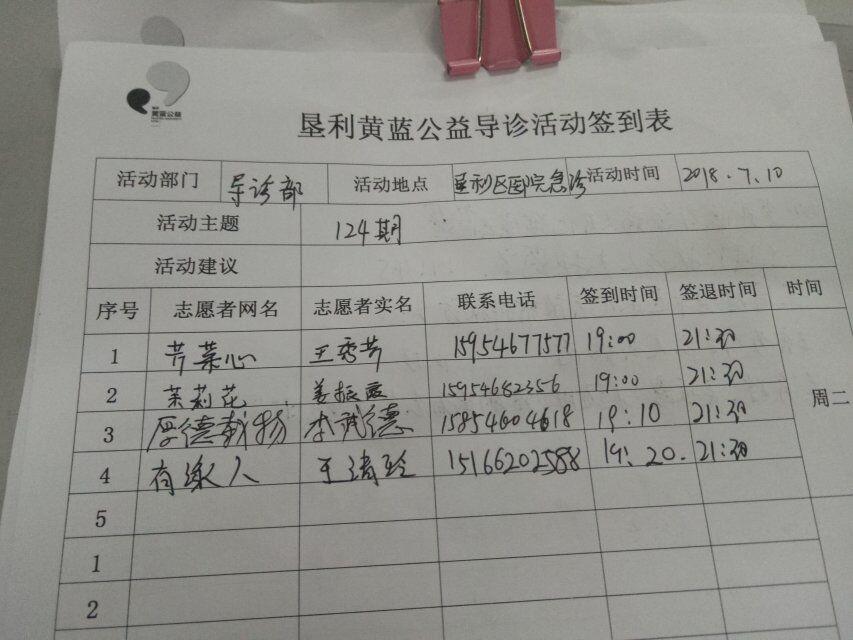 黄蓝公益
垦利黄蓝公益导诊活动签到表
活动部门 导诊部 活动地点 垦利区医院急诊 活动时间 2018.7.10
活动主题 124期
活动建议
序号 志愿者网名 志愿者实名 联系电话 签到时间 签退时间 时间
1 芹菜心 王秀芹 15954677577 19:00 21:30
2 茉莉花 姜振霞 15954682356 19:00 21:30
周二
3 厚德载物 李武德 15854604618 19:10 21:30
4 有缘人 王 15166202588 19:20. 21:30
5
1
2